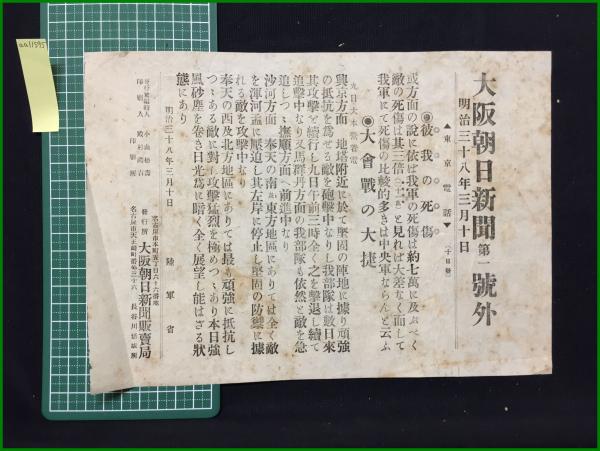 大阪朝日新聞 第一 號外
明治三十八年三月十日
▲東京電話▼(十日發)
◉彼我の死傷
或方面の說に依ば我軍の死傷は約七萬に及ぶべく
敵の死傷は其三倍と見れば大差なく而して
我軍にて死傷の比較的多きは中央軍ならんと云ふ
◉大會戰の大捷
九日大本營着電
興京方面 地塔附近に於て堅固の陣地に據り頑強
の抵抗を爲せる敵を砲擊中なりし我部隊は數日來
其攻擊を續行し九日午前三時全く之を擊退し續て
追擊中なり又馬群丹方面の我部隊も依然と敵を急
追しつゝ撫順方面へ前進中なり
沙河方面 奉天の南及東方地區にありては全く敵
を渾河孟に壓迫し其左岸に停止し堅固の防禦に據
れる敵を攻擊中なり
奉天の西及北方地區にありては最も頑強に抵抗し
つゝある敵に對し攻擊猛烈を極めつゝあり本日強
風砂塵を卷き日光爲に暗く全く展望し能はざる狀
態にあり
明治三十八年三月十日 陸軍省
名古屋市本町五丁目六十六番地
發行所 大阪朝日新聞販賣局
名古屋市天王崎町番外三十六
長谷川活版所
發行兼編輯人 小山松壽
印刷人
印刷所
aa11595